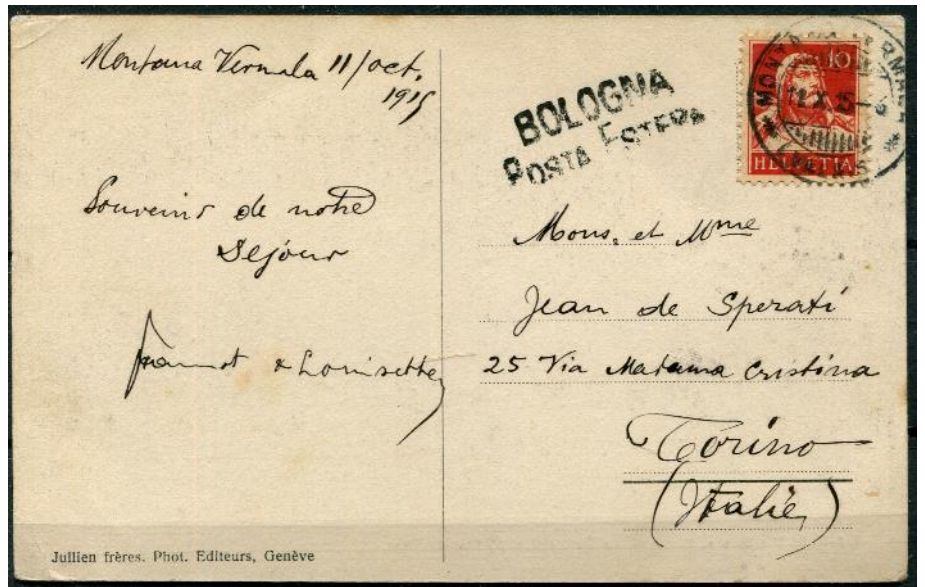 Montana Vermala 11/oct.
1915
Souvenir de notre
Séjour
Jeannot & Louisette
Jullien frères. Phot. Editeurs, Genève
BOLOGNA
POSTA ESTERA
10
HELVETIA
MONTANA-VERMALA
11.X.15
Mons. et Mme
Jean de Sperati
25 Via Madama Cristina
Torino
(Italie)